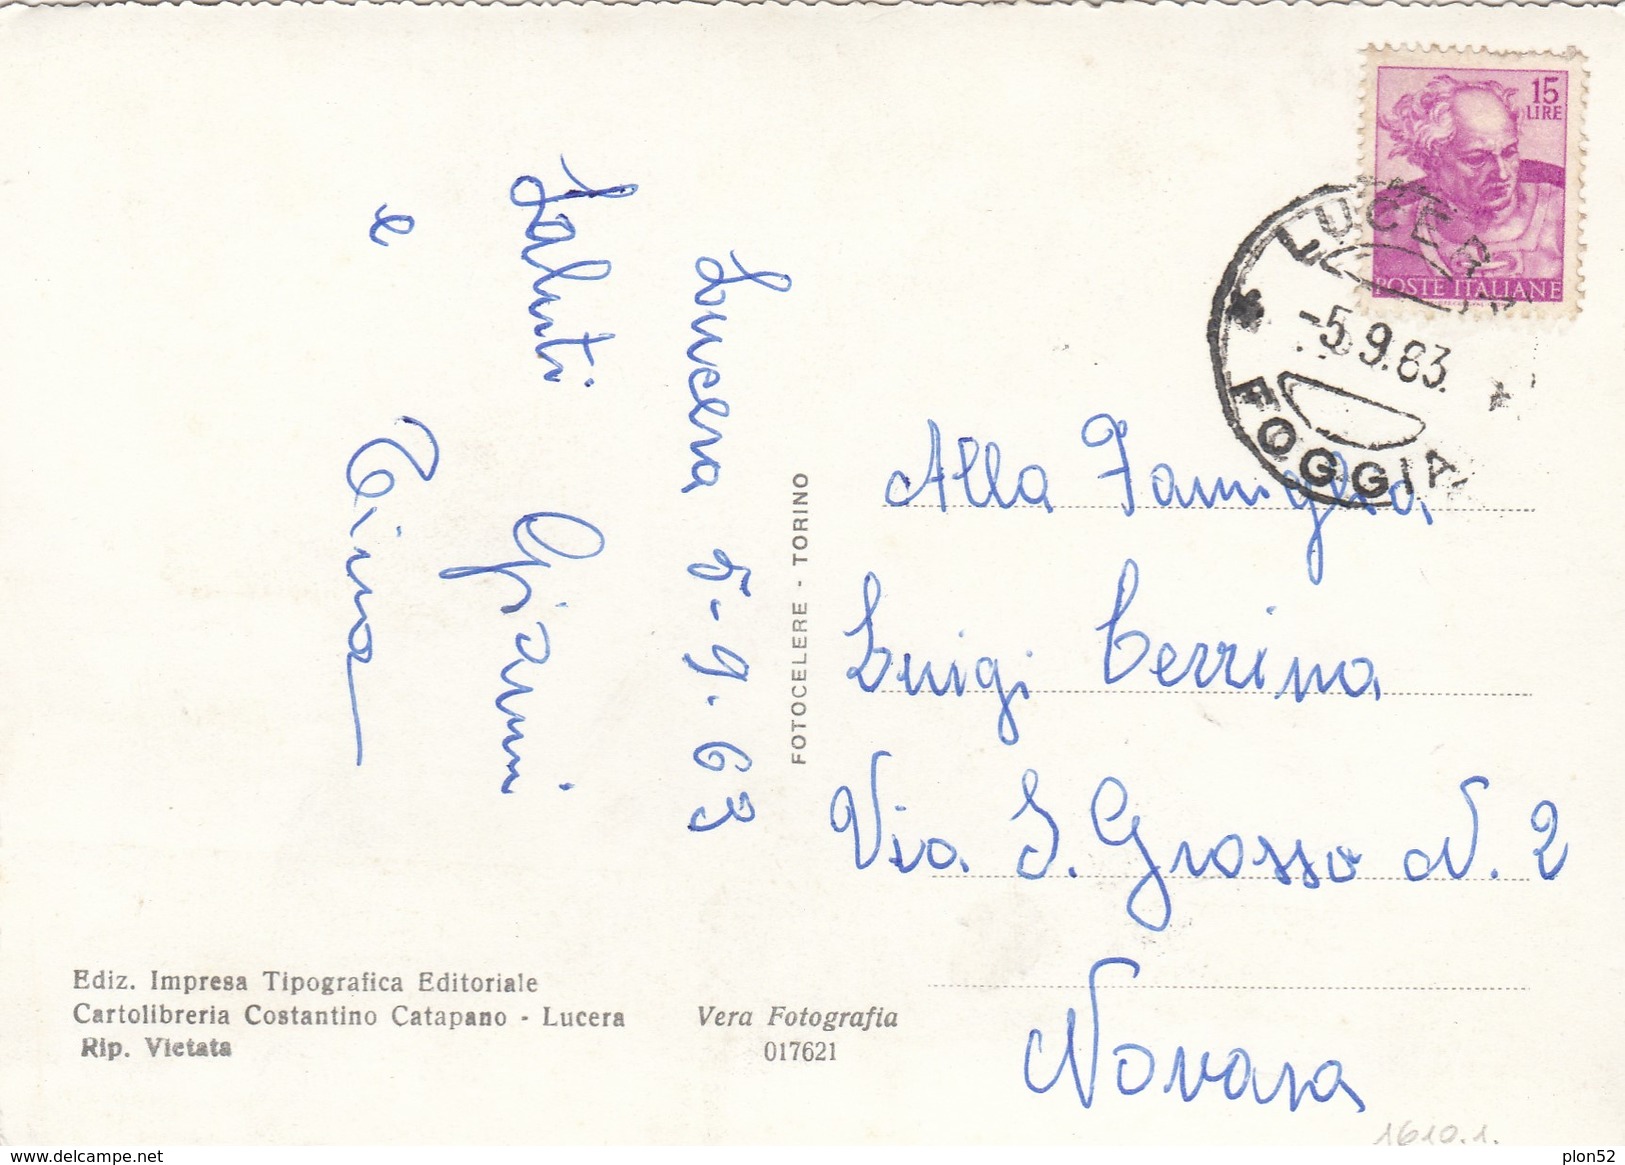 Lucera 5-9.63
Saluti Gianni
e Tina
FOTOCELERE - TORINO
15
LIRE
POSTE ITALIANE
LUCERA
-5.9.63.
FOGGIA
Alla Famiglia
Luigi Cerrina
Via S. Grosso N. 2
Novara
Ediz. Impresa Tipografica Editoriale
Cartolibreria Costantino Catapano - Lucera
Rip. Vietata
Vera Fotografia
017621
1610.1.
www.delcampe.net
plon52